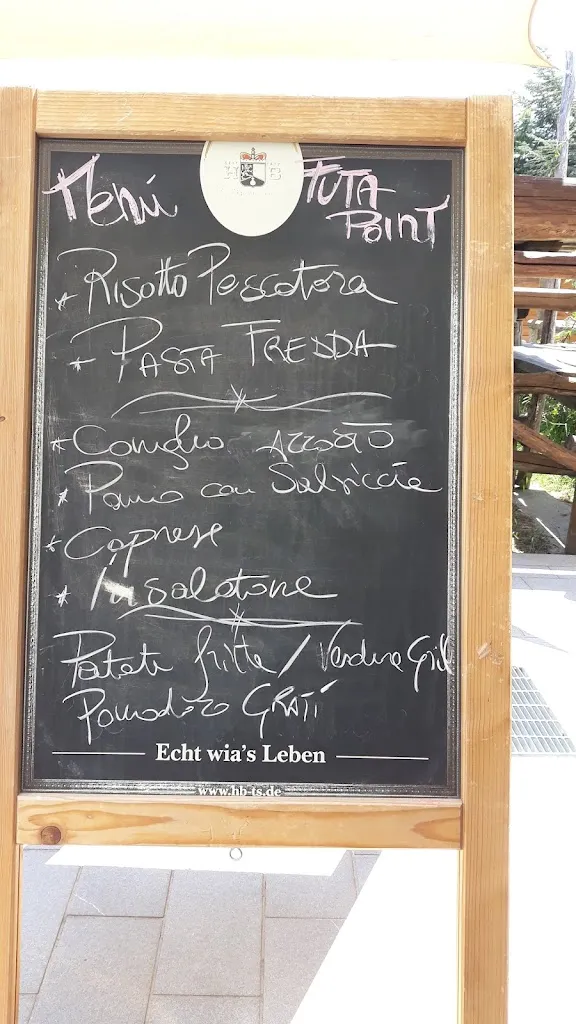 Menú
FUTA POINT
H B
* Risotto Pescatora
* PASTA FREDDA
* Coniglio ARROSTO
* Panino con Salsiccia
* Caprese
* Insalatone
Patate fritte / Verdure Gril
Pomodoro GRATÍ
Echt wia's Leben
www.hb-ts.de